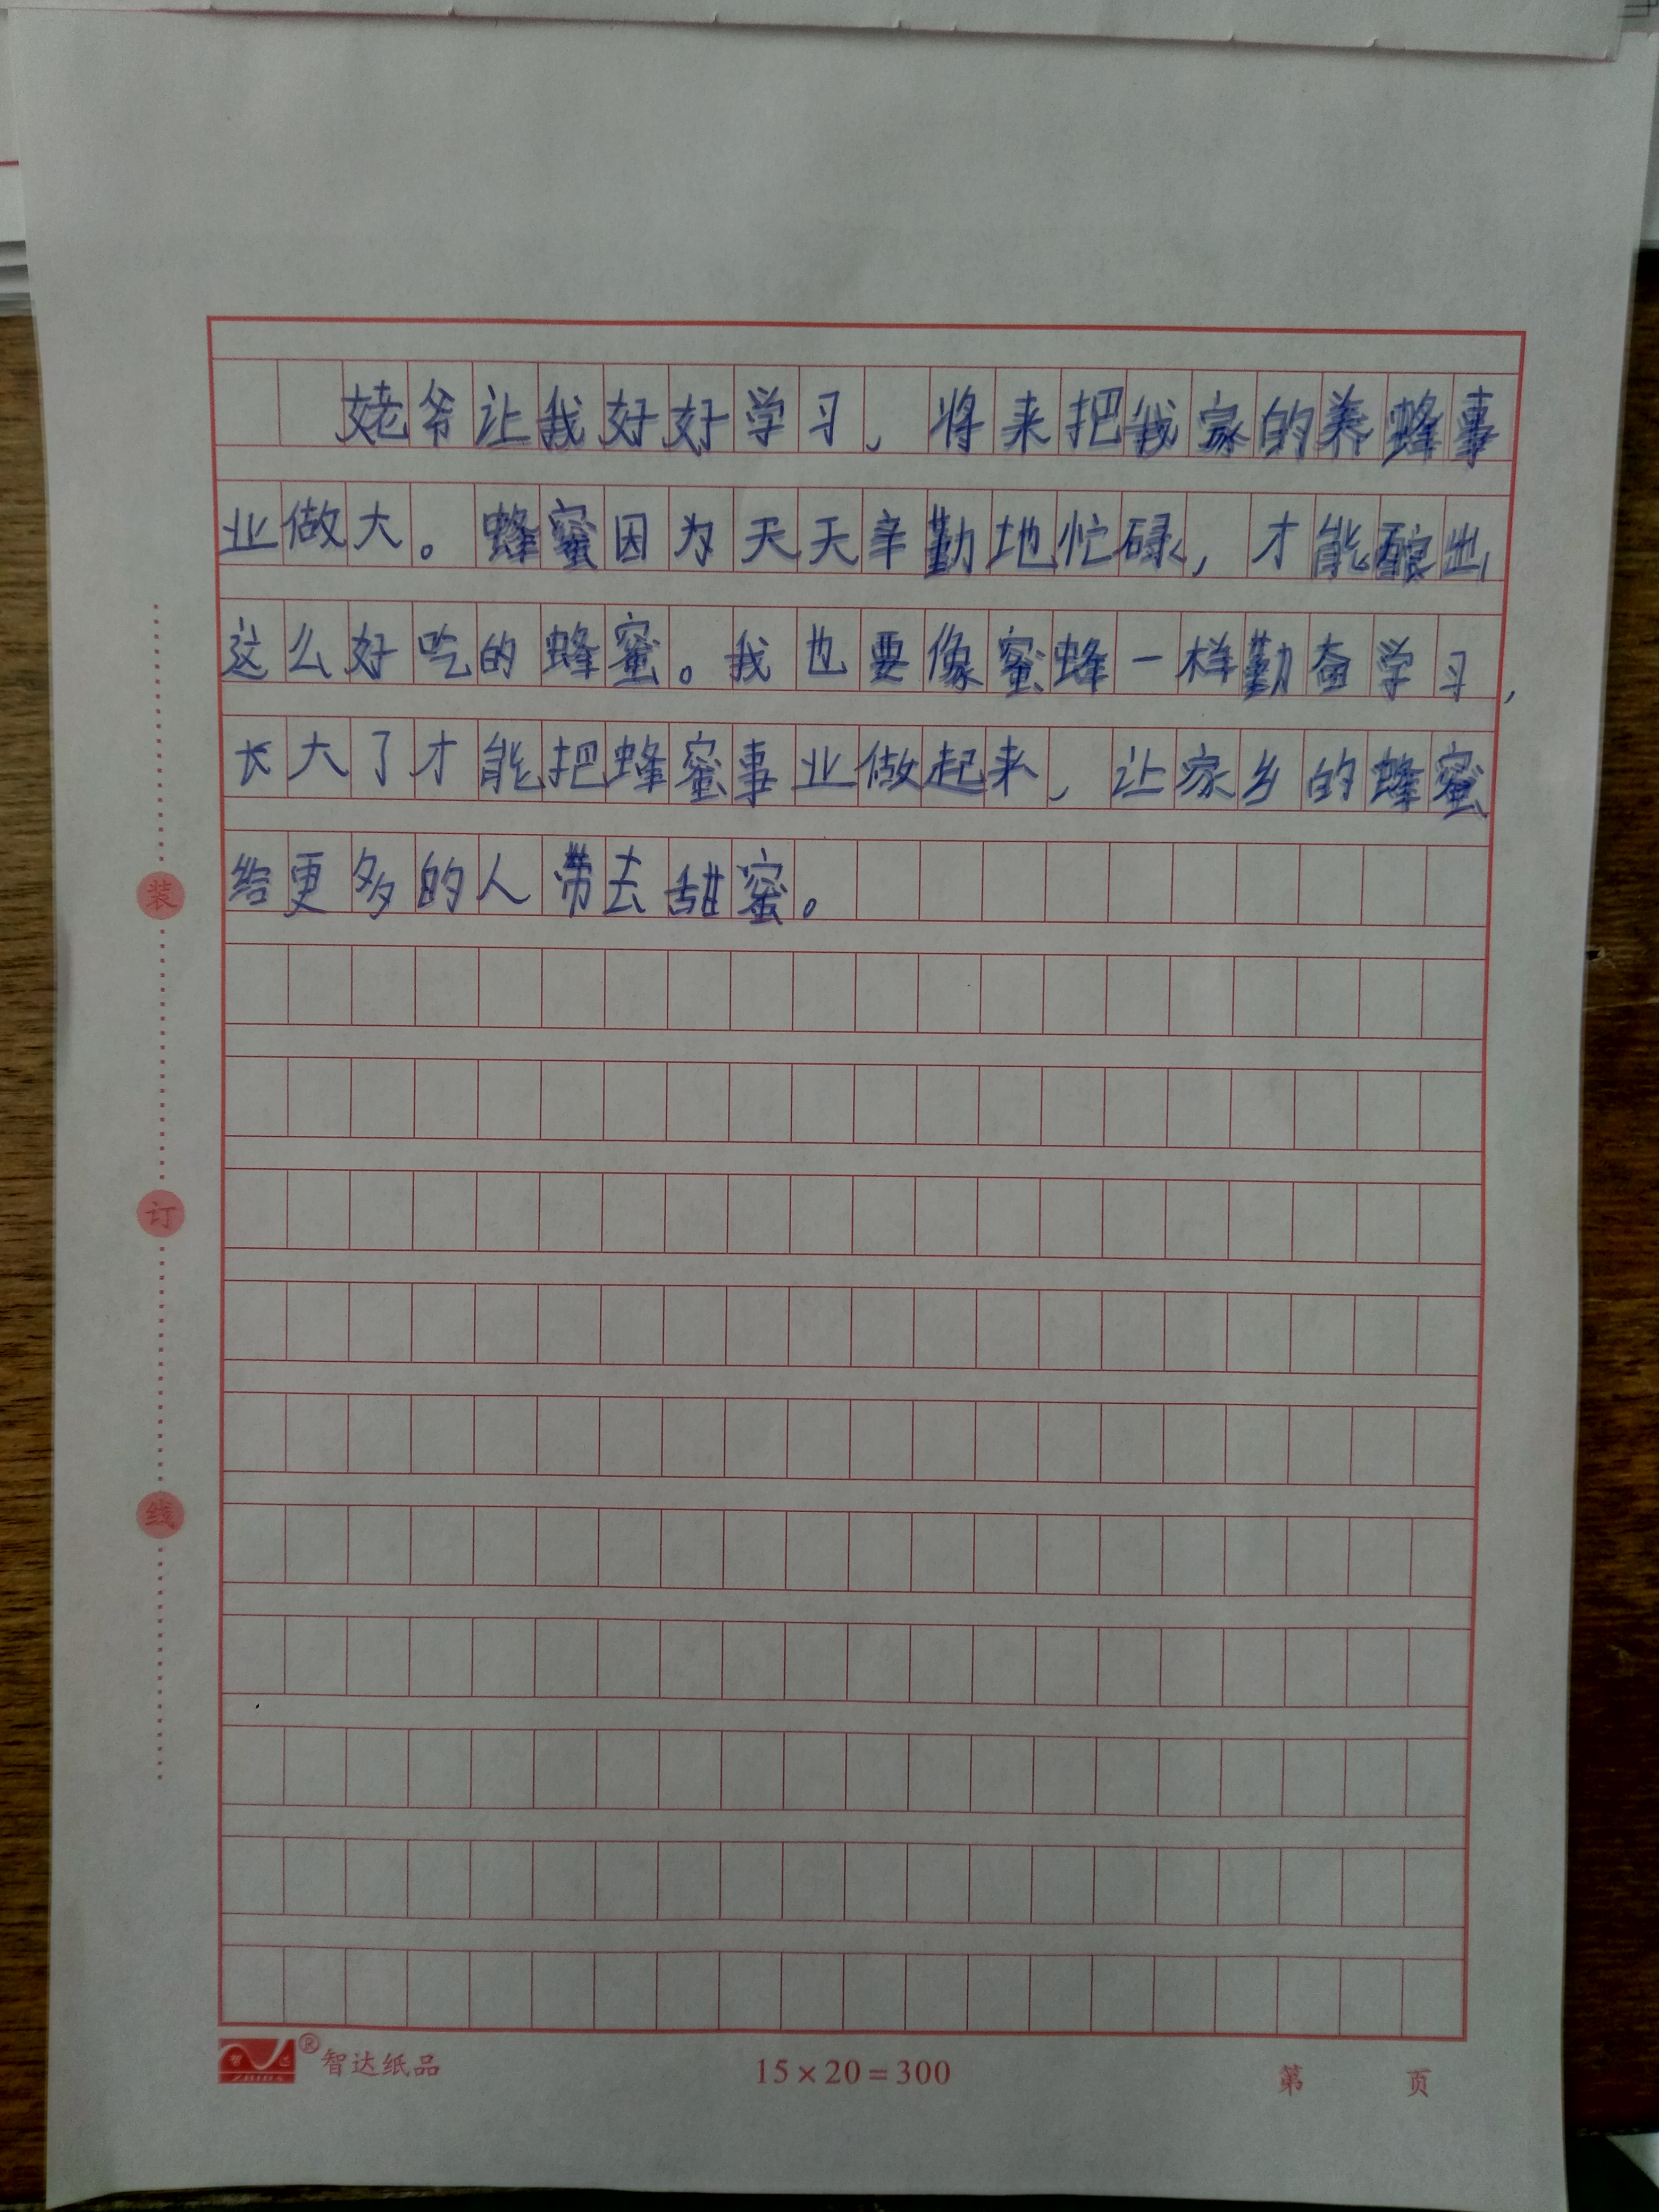 姥爷让我好好学习，将来把我家的养蜂事
业做大。蜂蜜因为天天辛勤地忙碌，才能酿出
这么好吃的蜂蜜。我也要像蜜蜂一样勤奋学习，
长大了才能把蜂蜜事业做起来，让家乡的蜂蜜
给更多的人带去甜蜜。
装
订
线
智达
ZHIDA
®智达纸品 15×20=300 第 页